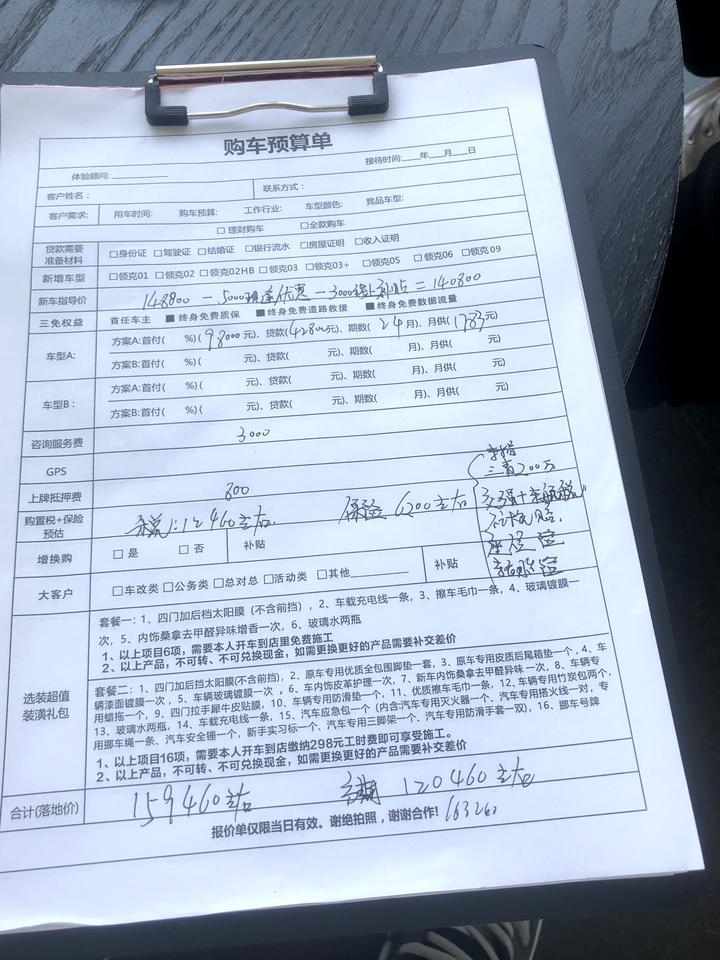 购车预算单
体验顾问:
接待时间:___年___月___日
客户姓名:
联系方式:
客户需求: 用车时间: 购车预算: 工作行业: 车型颜色: 竞品车型:
□ 理财购车 □全款购车
贷款需要准备材料 □身份证 □驾驶证 □结婚证 □银行流水 □房屋证明 □收入证明
新增车型 □领克01 □领克02 □领克02HB □领克03 □领克03+ □领克05 □领克06 □领克09
新车指导价 148800 - 5000 优惠 - 3000 补贴 = 140800
三免权益 首任车主 ■ 终身免费质保 ■ 终身免费道路救援 ■ 终身免费数据流量
车型A:
方案A:首付( %)(98000元)、贷款(42800元)、期数(24月)、月供(1783元)
方案B:首付( %)( 元)、贷款( 元)、期数( 月)、月供( 元)
车型B:
方案A:首付( %)( 元)、贷款( 元)、期数( 月)、月供( 元)
方案B:首付( %)( 元)、贷款( 元)、期数( 月)、月供( 元)
咨询服务费 3000
GPS
上牌抵押费 800
车损
三者200万
交强+车船税
购置税+保险预估 税:12460左右 保险 6200左右
增换购 □ 是 □ 否 补贴
大客户 □车改类 □公务类 □总对总 □活动类 □其他 补贴
选装超值装潢礼包
套餐一:1、四门加后档太阳膜(不含前挡),2、车载充电线一条,3、擦车毛巾一条,4、玻璃镀膜一
次,5、内饰桑拿去甲醛异味增香一次,6、玻璃水两瓶
1、以上项目6项,需要本人开车到店里免费施工
2、以上产品,不可转、不可兑换现金,如需更换更好的产品需要补交差价
套餐二:1、四门加后档太阳膜(不含前挡),2、原车专用优质全包围脚垫一套,3、原车专用皮质后尾箱垫一个,4、车
辆漆面镀膜一次,5、车辆玻璃镀膜一次,6、车内饰皮革护理一次,7、新车内饰桑拿去甲醛异味一次,8、车辆专
用蜡拖一个,9、四门拉手犀牛皮贴膜,10、车辆专用防滑垫一个,11、优质擦车毛巾一条,12、车辆专用竹炭包两个,
13、玻璃水两瓶,14、车载充电线一条,15、汽车应急包一个(内含汽车专用灭火器一个、汽车专用搭火线一对,专
用挪车绳一条、汽车安全锤一个,新手实习标一个、汽车专用三脚架一个、汽车专用防滑手套一双),16、挪车号牌
1、以上项目16项,需要本人开车到店缴纳298元工时费即可享受施工。
2、以上产品,不可转、不可兑换现金,如需更换更好的产品需要补交差价
合计(落地价) 159460左右 120460左右
报价单仅限当日有效。谢绝拍照,谢谢合作! 163260